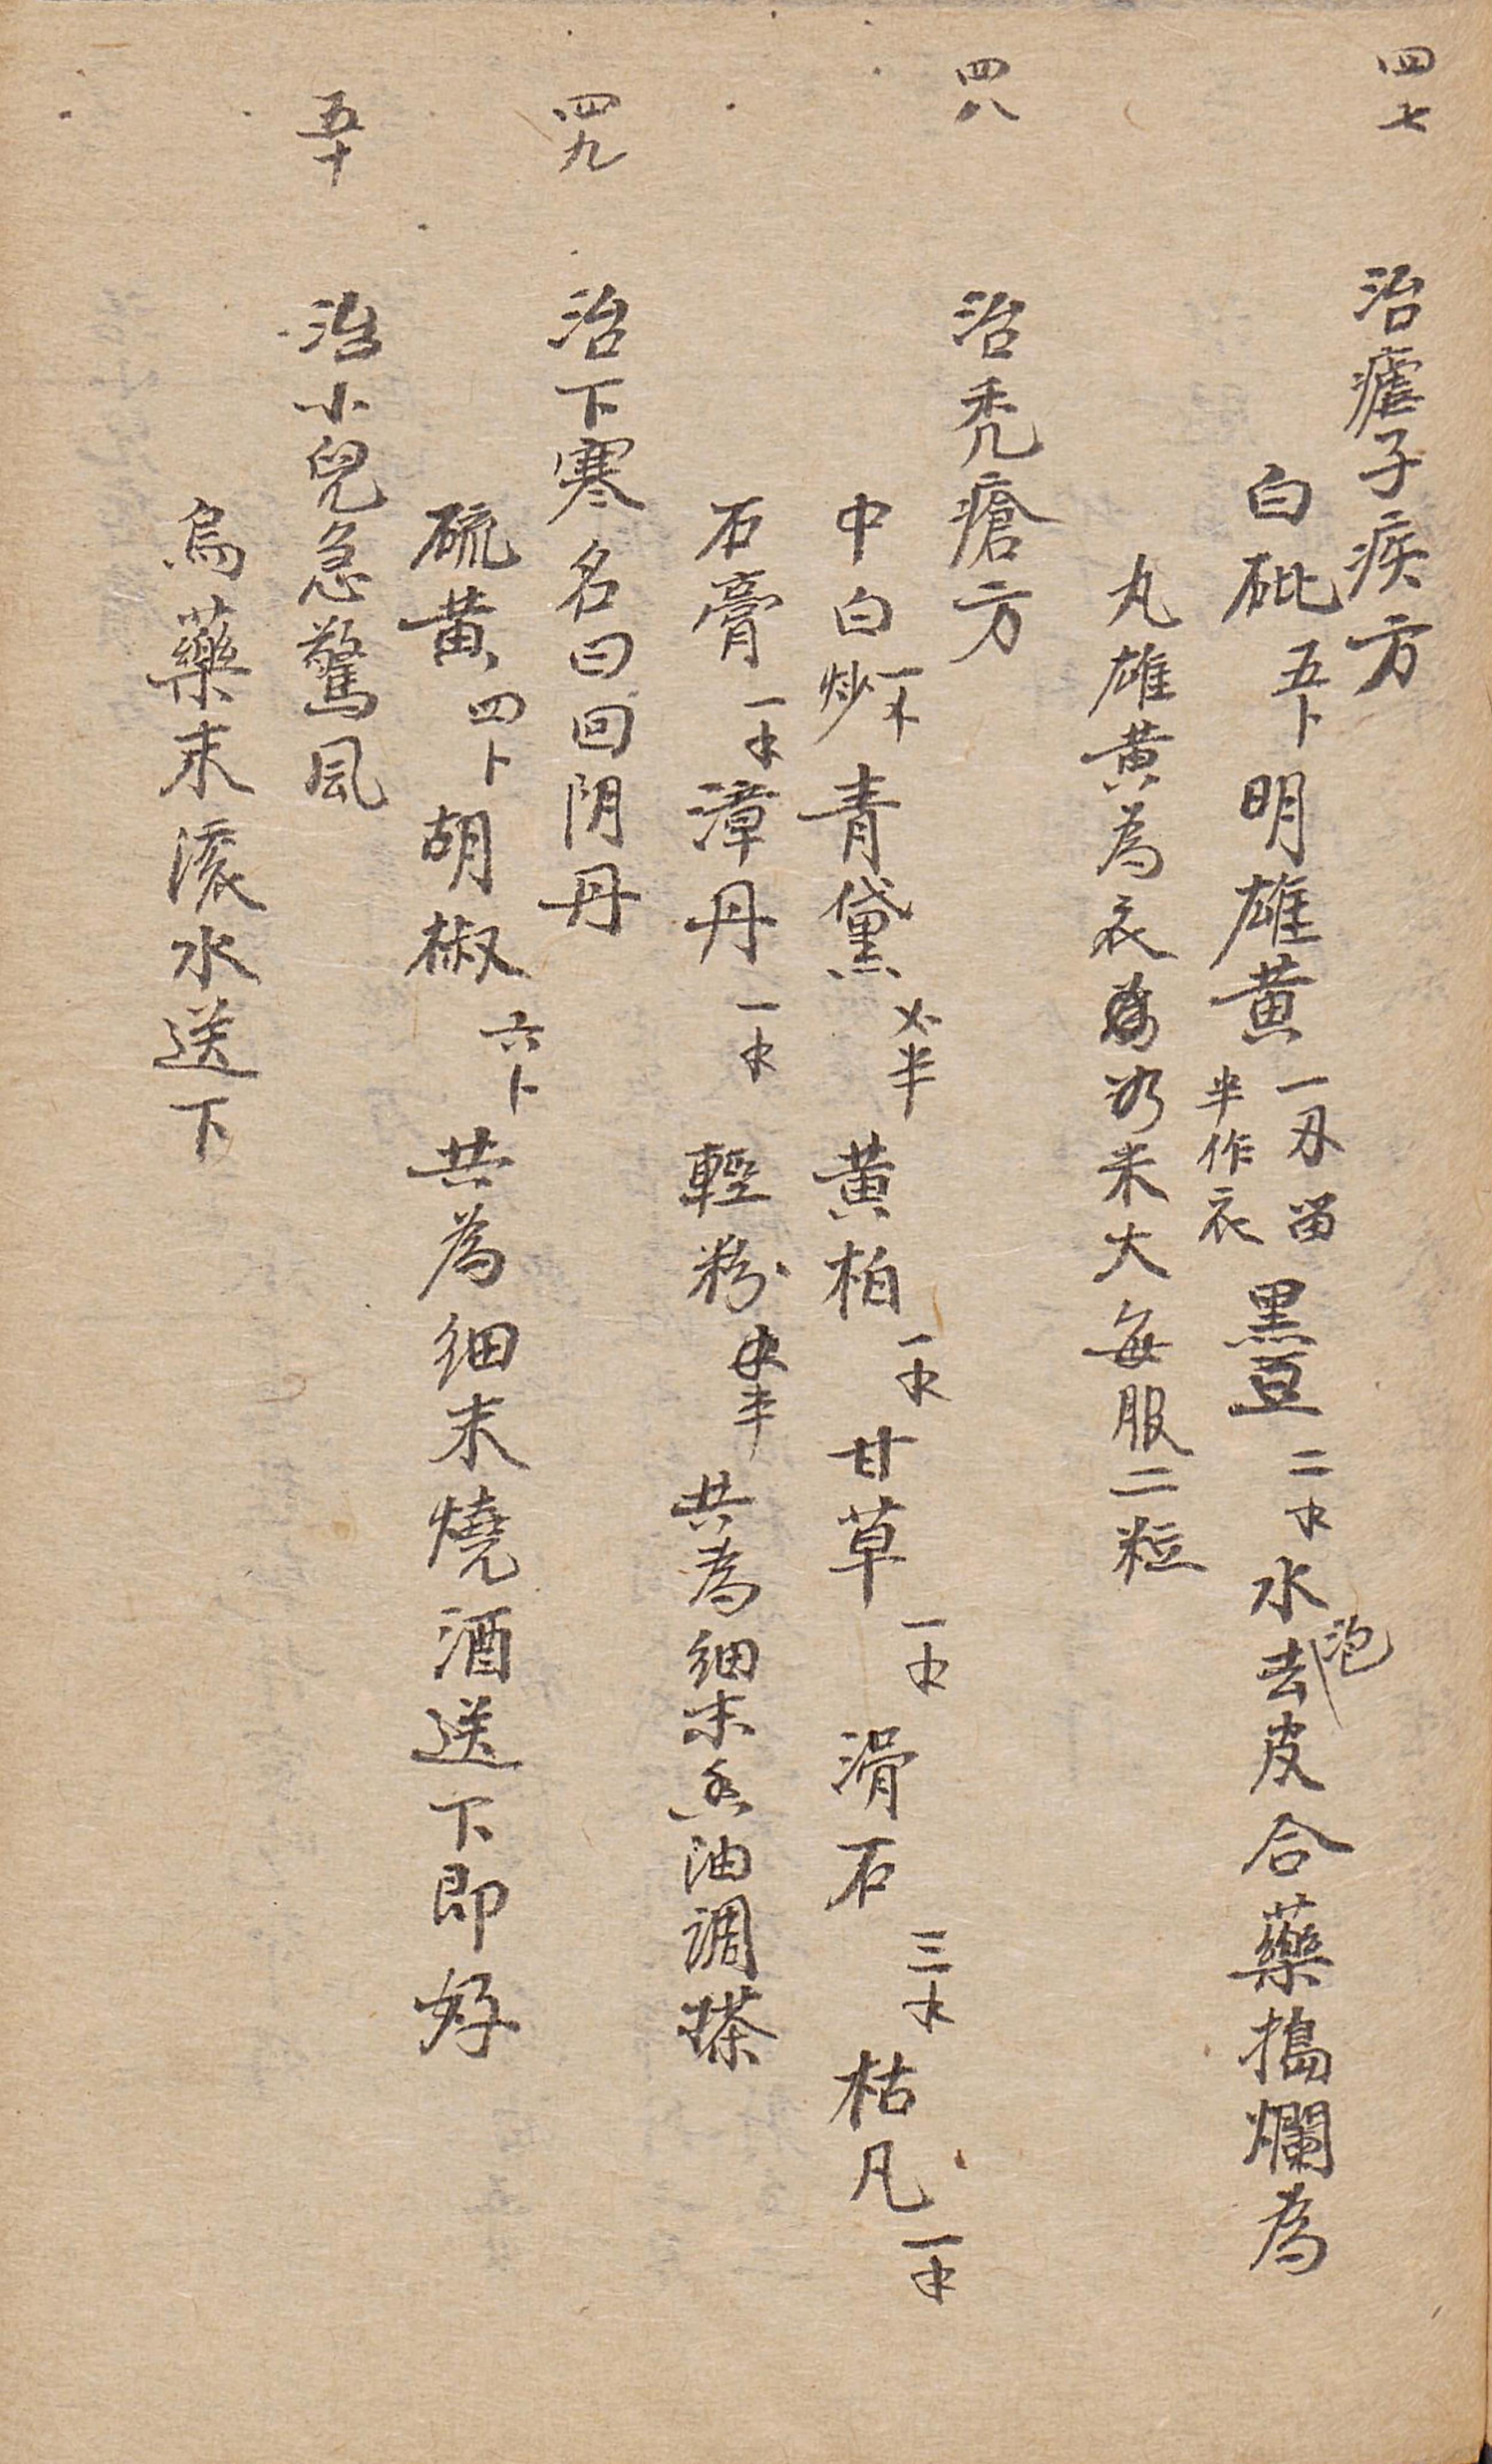 四七
治瘧子疾方
白砒 五卜 明雄黃 一刄 留半作衣 黑豆 二 水泡去皮合藥搗爛為
丸雄黃為衣 米大每服二粒
四八
治禿瘡方
中白 炒 一 青黛 半 黃柏 一 甘草 一 滑石 三 枯凡 一
石膏 一 漳丹 一 輕粉 半 共為細末香油調搽
四九
治下寒名曰回阴丹
硫黄 四卜 胡椒 六卜 共為细末燒酒送下即好
五十
治小兒急驚風
烏藥末滚水送下